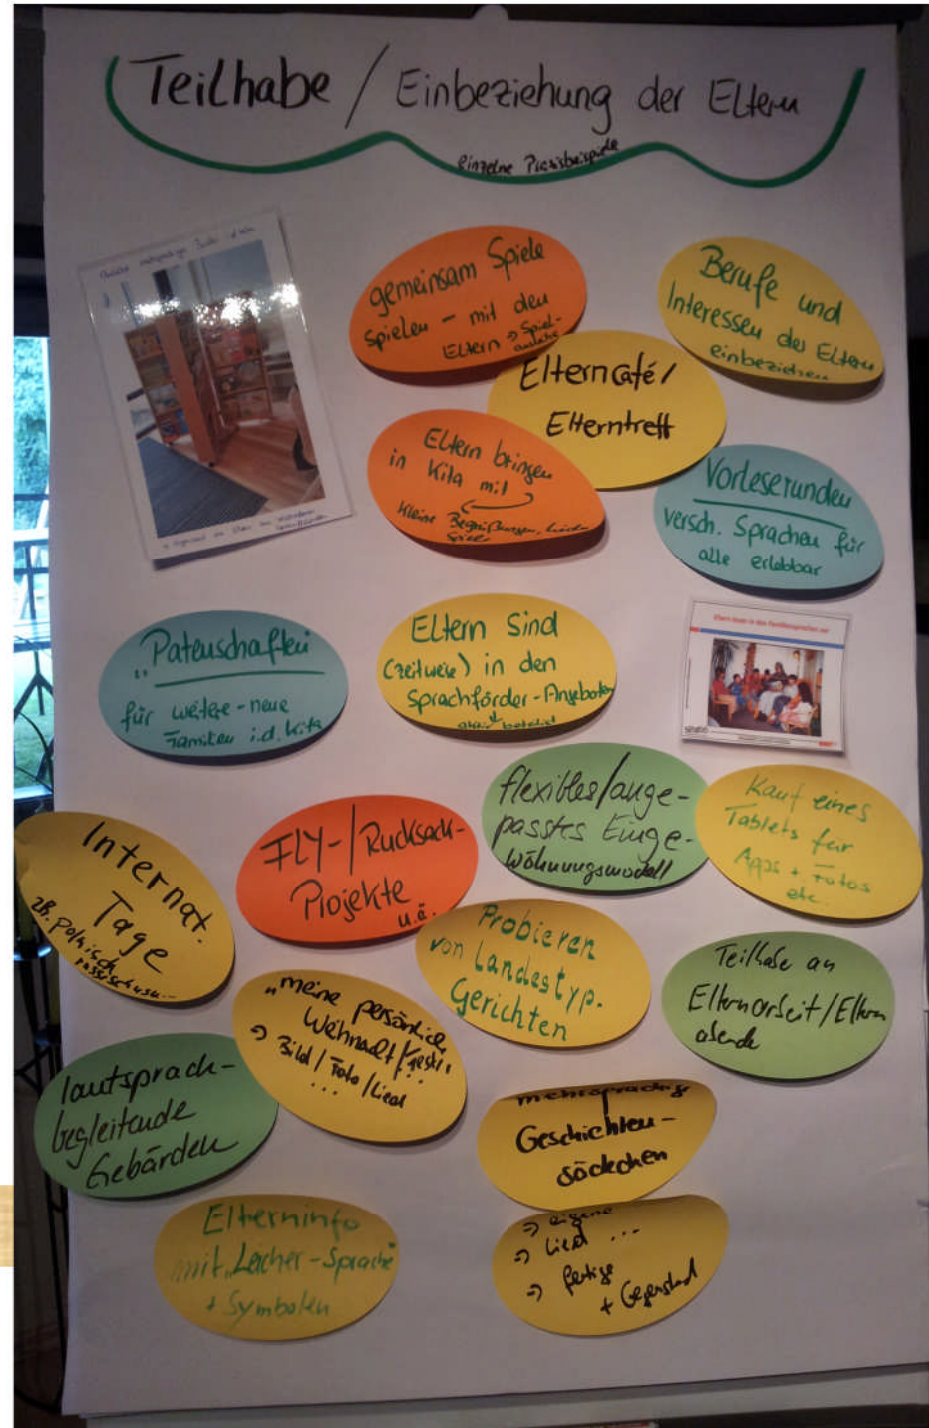 Teilhabe / Einbeziehung der Eltern
einzelne Praxisbeispiele
gemeinsam Spiele
spielen – mit den
Eltern => Spiel-
Berufe und
Interessen der Eltern
einbeziehen
Elterncafé /
Elterntreff
Eltern bringen
in Kita mit
kleine Begrüßungen, Lieder
Spiele
Vorleserunden
versch. Sprachen für
alle erlebbar
Eltern lesen in den Familiensprachen vor
"Patenschaften
für weitere-neue
Familien i.d. Kita
Eltern sind
(zeitweise) in den
Sprachförder-Angeboten
aktiv beteiligt
flexibles/ange-
passtes Einge-
wöhnungsmodell
Kauf eines
Tablets für
Apps + Fotos
etc.
Internat.
Tage
zB. polnisch
russisch usw...
FLY-/Rucksack-
Projekte
u.ä.
Probieren
von Landestyp.
Gerichten
Teilhabe an
Elternarbeit/Eltern
abende
"meine persönlich
Weihnacht/Fest"
=> Bild / Foto / Lied
...
lautsprach-
begleitende
Gebärden
mehrsprachig
Geschichten-
säckchen
=> eigene
=> Lied ...
=> fertige
+ Gegenstand
Elterninfo
mit "Leichter-Sprache"
+ Symbolen